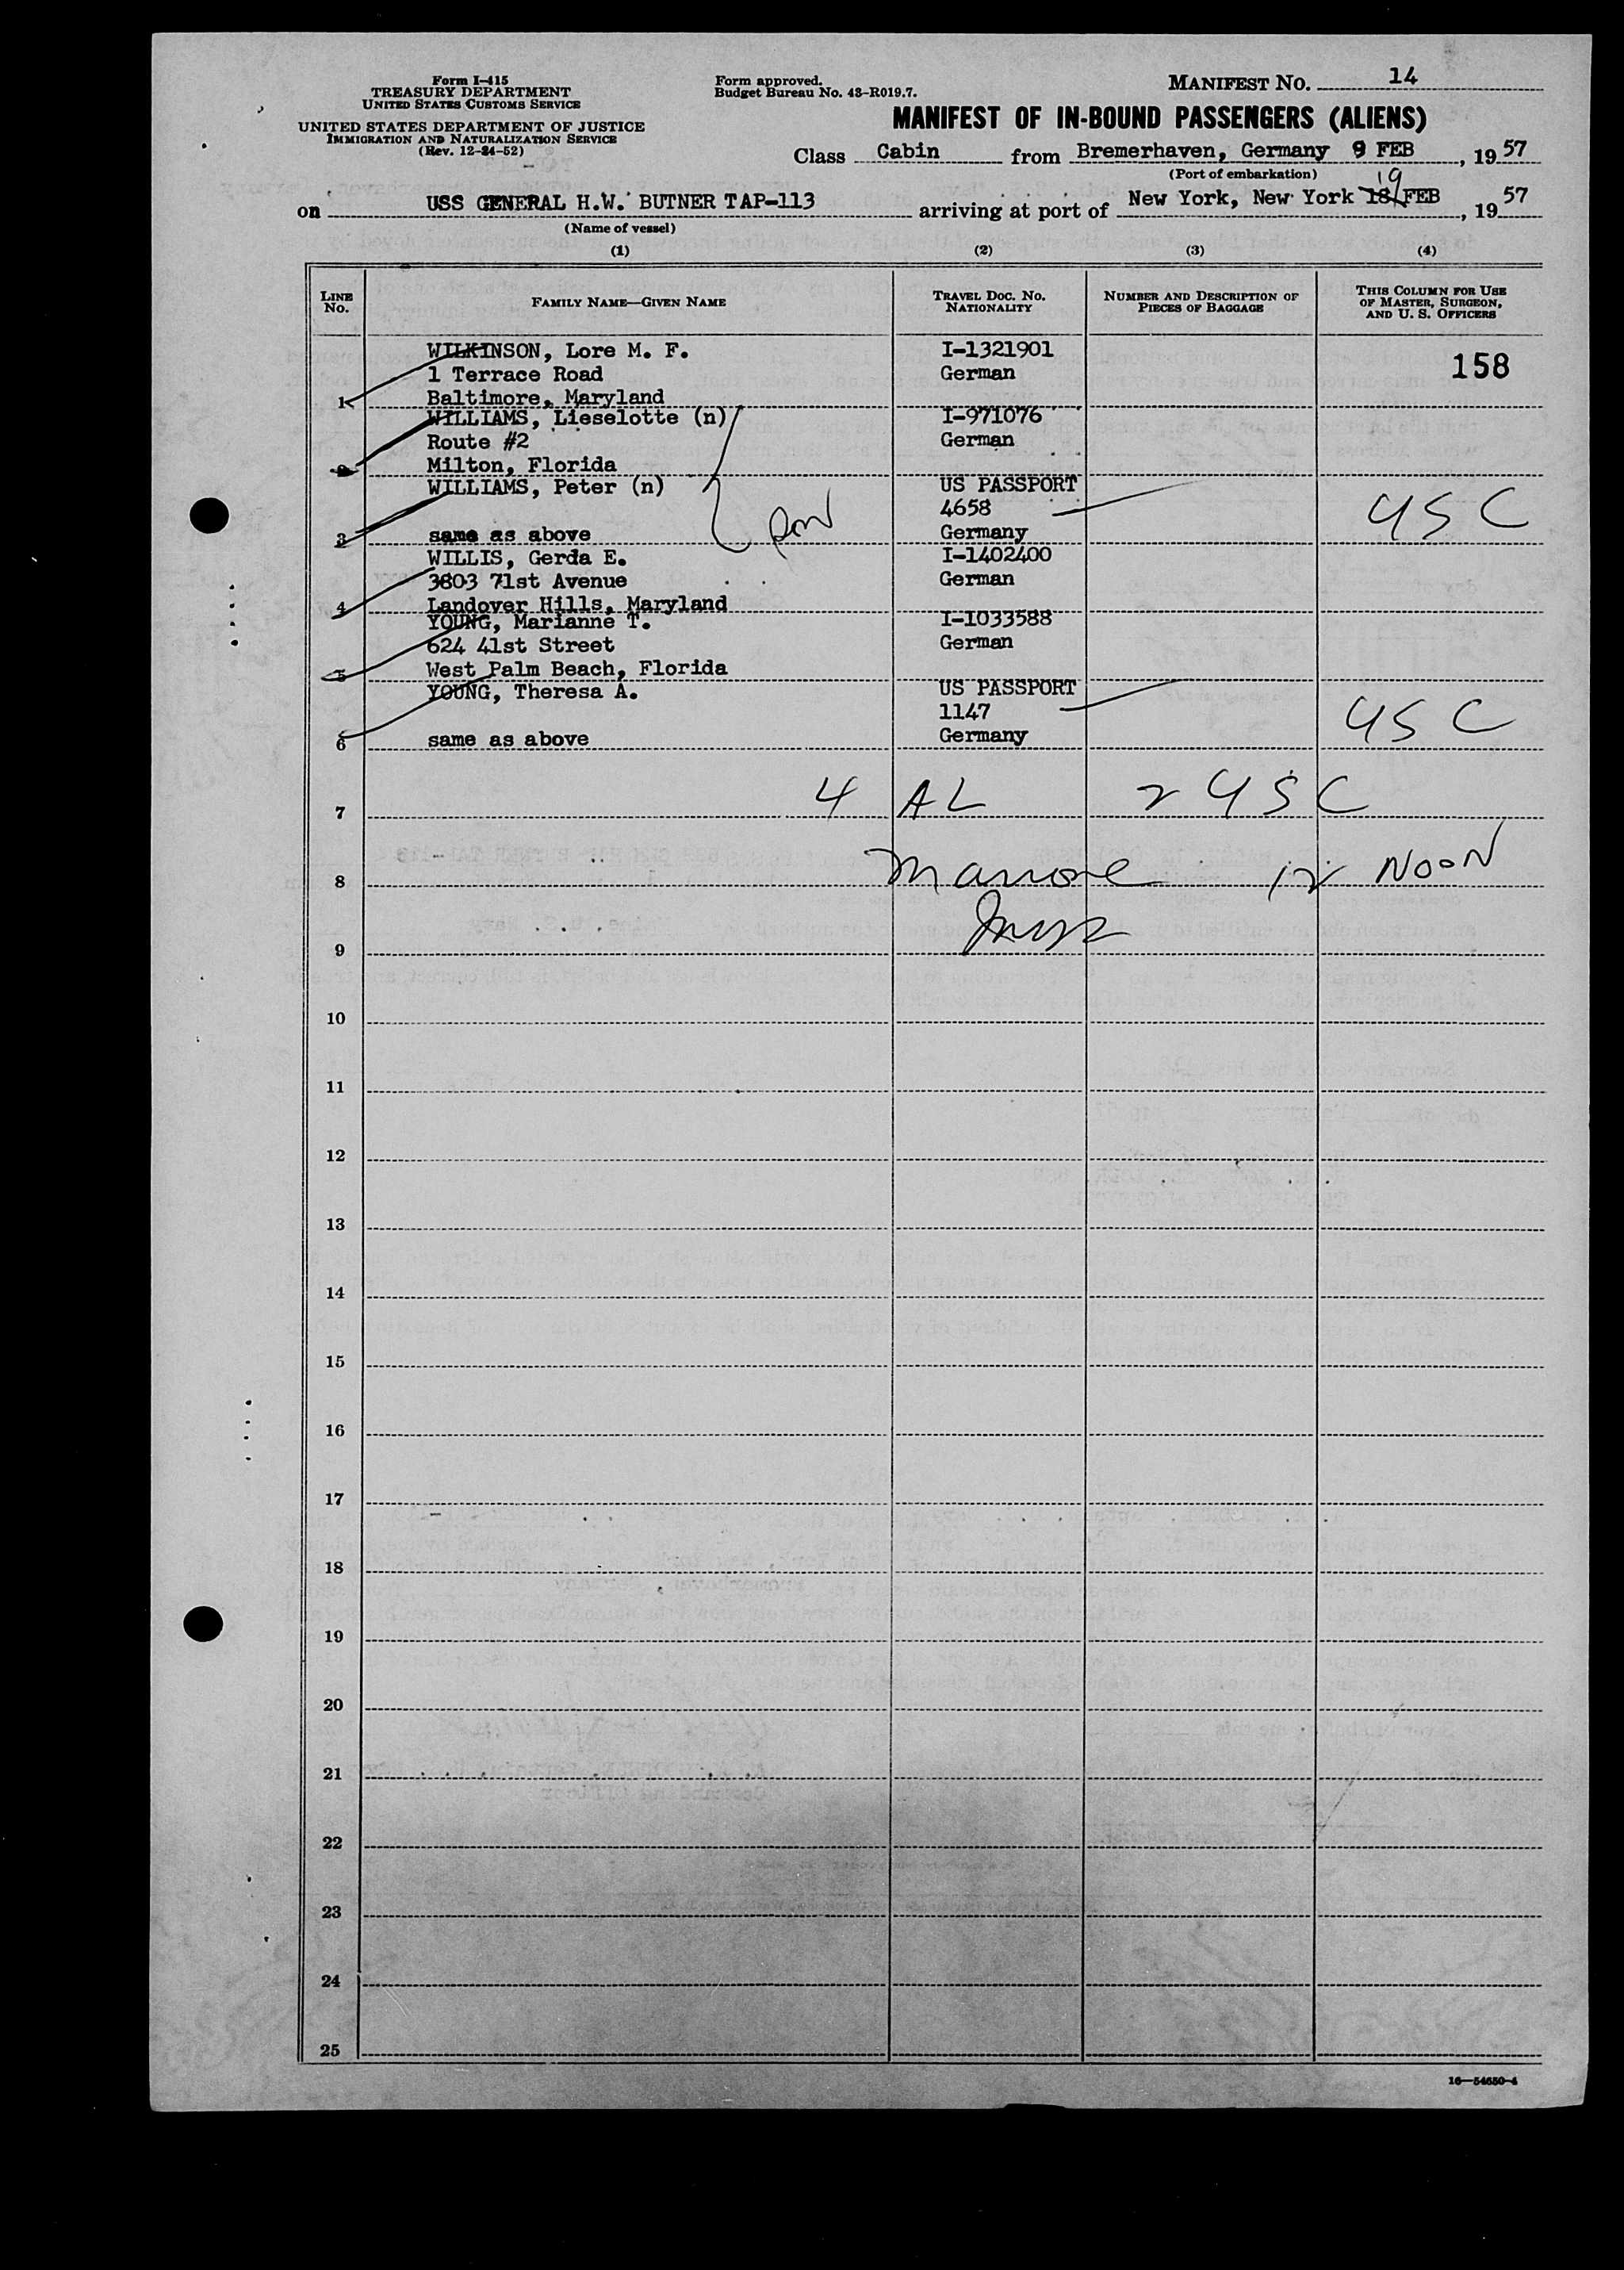 Form I-415
TREASURY DEPARTMENT
UNITED STATES CUSTOMS SERVICE
UNITED STATES DEPARTMENT OF JUSTICE
IMMIGRATION AND NATURALIZATION SERVICE
(Rev. 12-24-52)
Form approved.
Budget Bureau No. 43-R019.7.
MANIFEST NO. 14
MANIFEST OF IN-BOUND PASSENGERS (ALIENS)
Class Cabin from Bremerhaven, Germany 9 FEB, 1957
(Port of embarkation)
19
on USS GENERAL H.W. BUTNER TAP-113 arriving at port of New York, New York 18 FEB, 1957
(Name of vessel)
(1) (2) (3) (4)
LINE NO. FAMILY NAME—GIVEN NAME TRAVEL DOC. NO. NATIONALITY NUMBER AND DESCRIPTION OF PIECES OF BAGGAGE THIS COLUMN FOR USE OF MASTER, SURGEON, AND U. S. OFFICERS
WILKINSON, Lore M. F. I-1321901 158
1 Terrace Road German
1 Baltimore, Maryland
WILLIAMS, Lieselotte (n) I-971076
Route #2 German
2 Milton, Florida
WILLIAMS, Peter (n) US PASSPORT
4658 USC
3 same as above Germany
WILLIS, Gerda E. I-1402400
3803 71st Avenue German
4 Landover Hills, Maryland
YOUNG, Marianne T. I-1033588
624 41st Street German
5 West Palm Beach, Florida
YOUNG, Theresa A. US PASSPORT
1147 USC
6 same as above Germany
7 4 AL 2 USC
8 12 NOON
9
10
11
12
13
14
15
16
17
18
19
20
21
22
23
24
25
16—54650-4